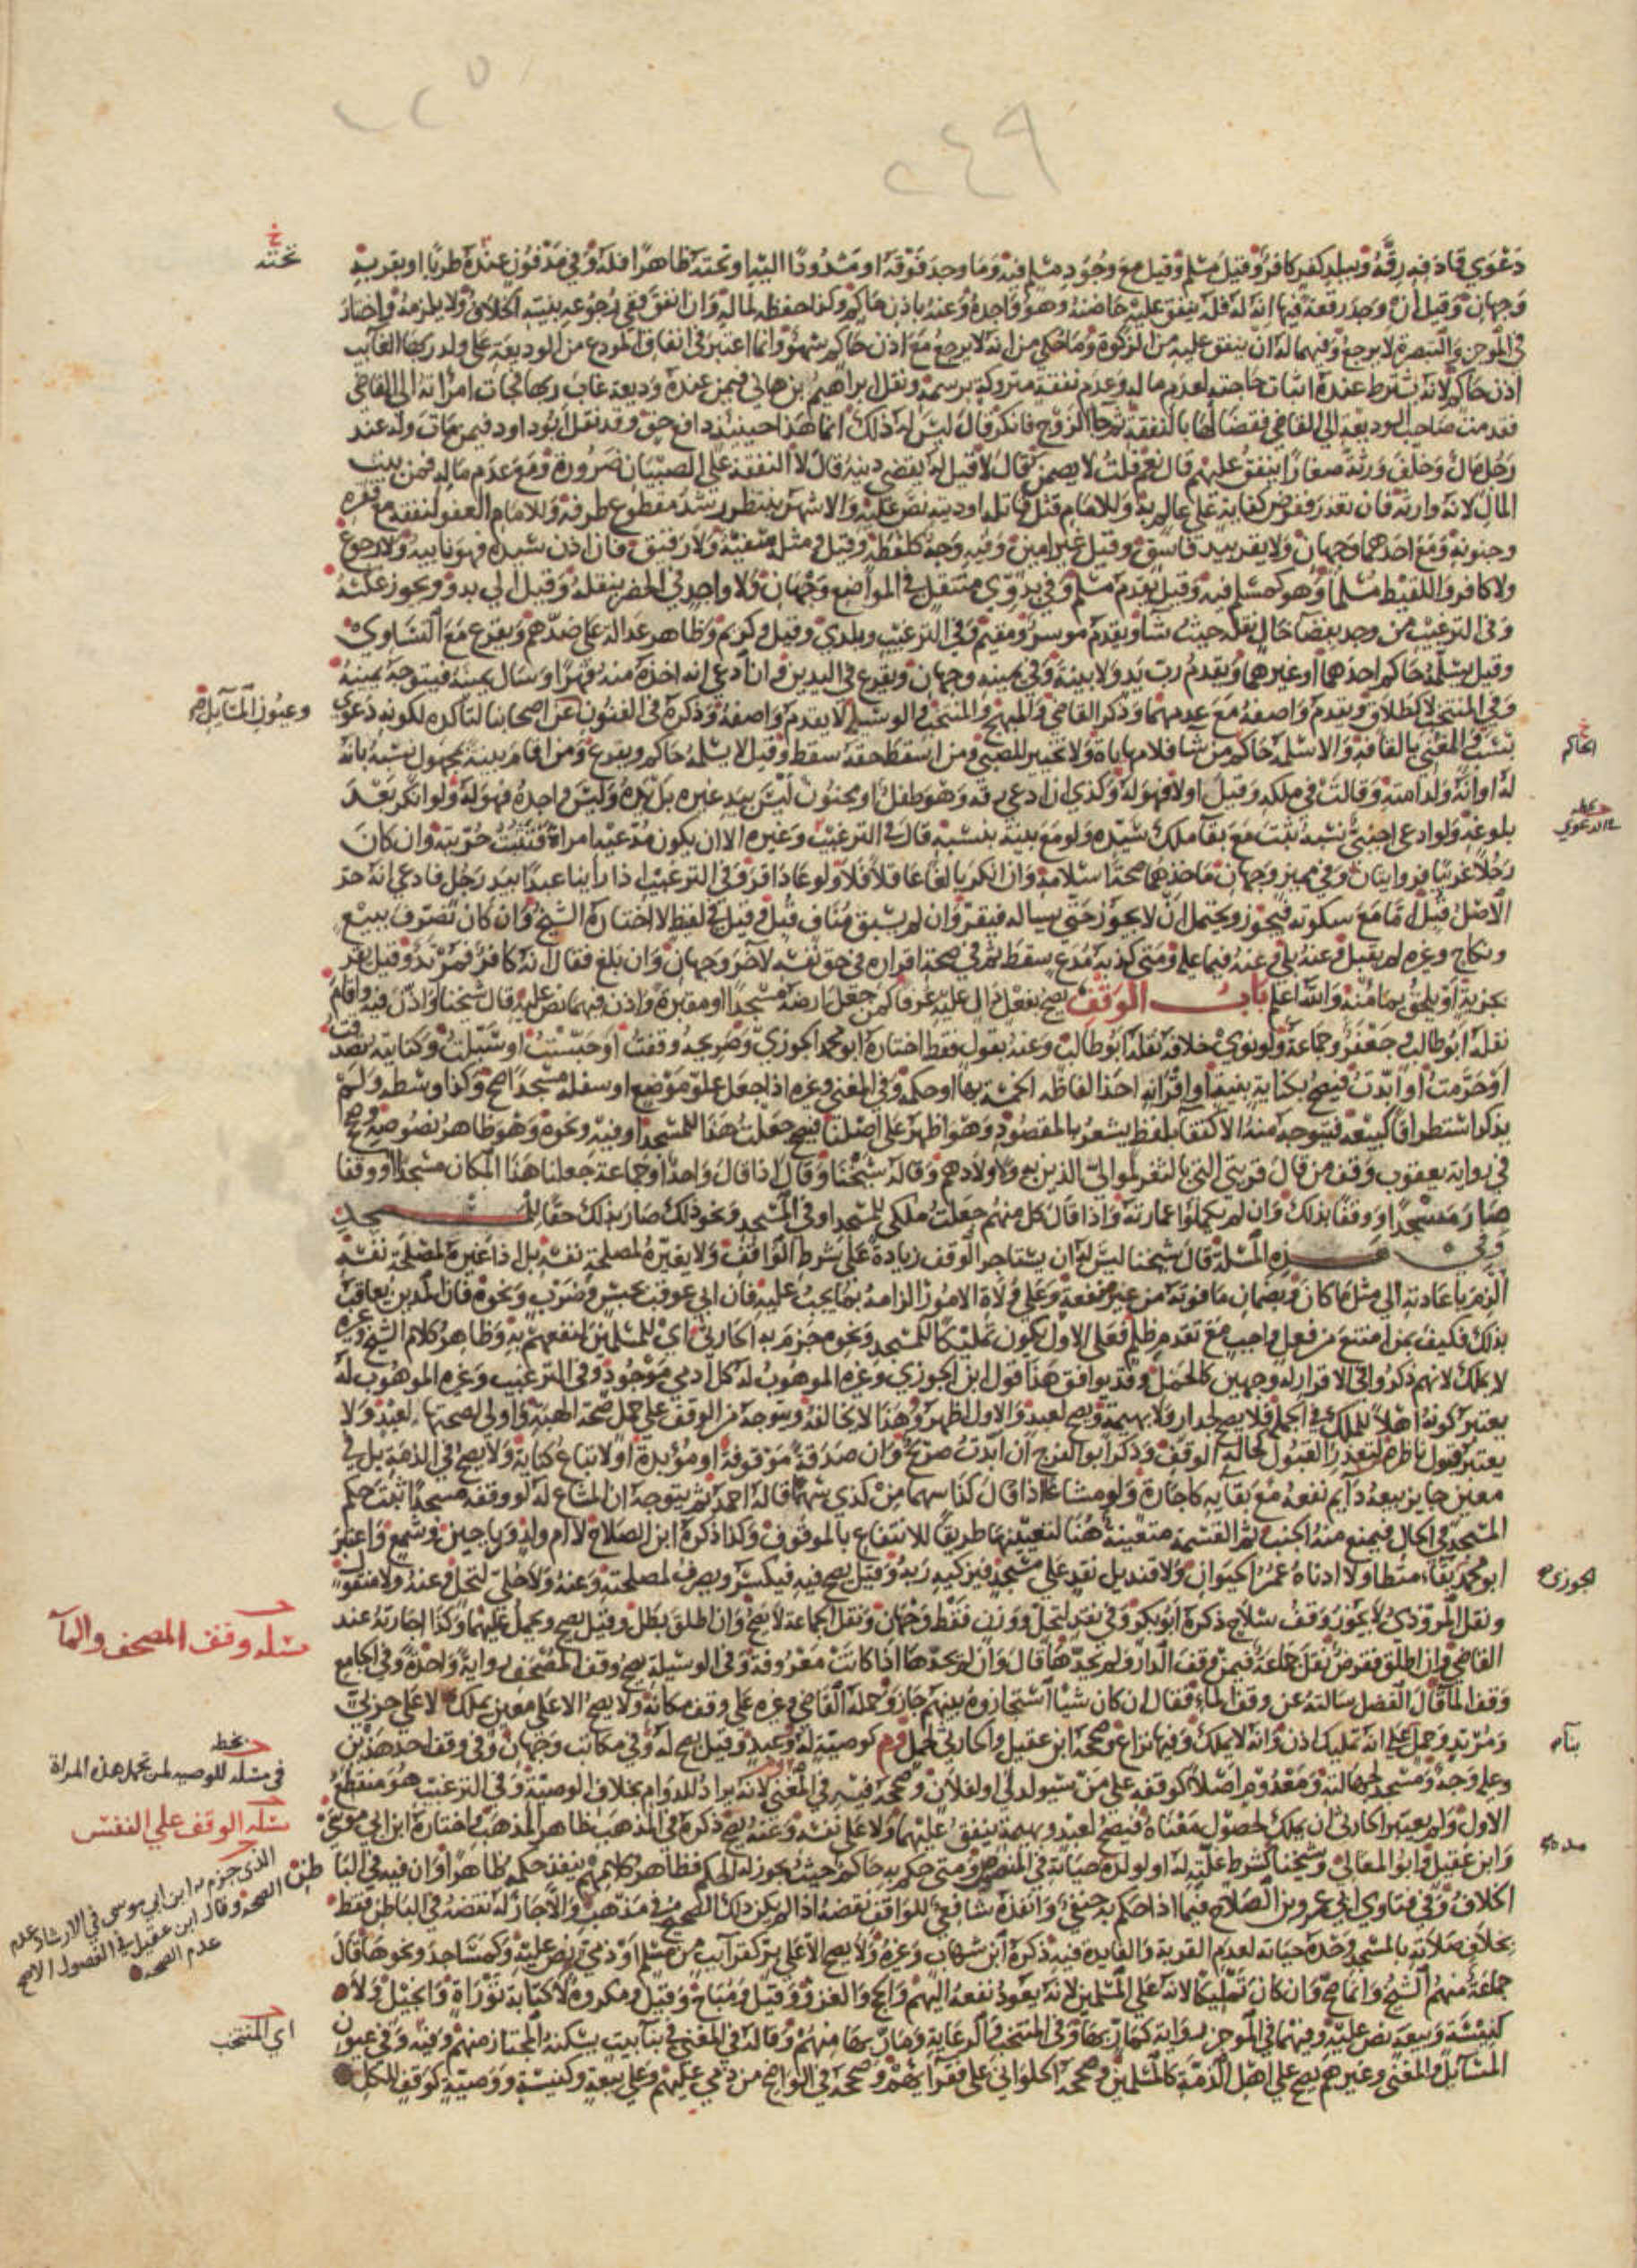 ٢٤٩
دعوى قادفه رقه وببلد كفر كافر وقيل مسلم وقيل مع وجود مسلم فيه وما وجد فوقه او مشدودا اليه او تحته ظاهرا فله وفي مدفون عنده طريا او بقربه
وجهان وقيل ان وجد رقعة فيها انه له فله ينفق عليه حاضنه وهو واجده وعنه باذن حاكم وكذا حفظه لماله وان انفق ففي رجوعه بنيته الخلاف ولا يلزمه واختار
في الموجز والتبصرة لا يرجع وفيهما له ان ينفق عليه من الزكوة وما حكي من انه لا يرجع مع اذن حاكم سهو وانما اعتبر في انفاق المودع من الوديعة على ولد ربها الغايب
اذن حاكم لانه يشترط عنده اثبات حاجته لعدم ماله وعدم نفقة متروكة برسمه ونقل ابراهيم بن هاني فيمن عنده وديعة غاب ربها فجات امراته الى القاضي
فقدمت صاحب الوديعة الى القاضي فقضا لها بالنفقة ثم جا الزوج فانكر قال ليس له ذلك انما هذا حينئذ دافع حق وقد نقل ابوداود فيمن مات وله عند
رجل مال وخلف ورثة صغارا ينفق عليهم قال نعم قلت لا يضمن قال لا قيل له يقضي دينه قال لا النفقة على الصبيان ضرورة ومع عدم ماله فمن بيت
المال لانه وارثه فان تعذر ففرض كفاية على عالم به وللامام قتل قاتله او ديته نص عليه والاشهر ينتظر رشد مقطوع طرفه وللامام العفو لنفقة مع فقره
وجنونه ومع احدهما وجهان ولا يقر بيد فاسق وقيل غير امين وفيه وجه كلقطة وقيل ومثله سفيه ولا رقيق فان اذن سيده فهو نايبه ولا رجوع
ولا كافر واللقيط مسلم وهو كمسلم فيه وقيل يقدم مسلم وفي بدوي متنقل في المواضع وجهان ولا واجد في الحضر ينقله وقيل الى بدو ويجوز عكسه
وفي الترغيب من وجد بفضا خال نقله حيث شا ويقدم موسر ومقيم وفي الترغيب وبلدي وقيل وكريم وظاهر عدالة على ضدهم ويقرع مع التساوي
وقيل يسلمه حاكم احدهما او غيرهما ويقدم رب يد ولا بينة وفي يمينه وجهان ويقرع في اليدين وان ادعى انه اخذه منه قهرا وسال يمينه فيتوجه يمينه
وفي المنتخب لا كطلاق ويقدم واصفه مع عدمهما وذكر القاضي والمبهج والمنتخب والوسيلة لا يقدم واصفه وذكره في الفنون عن اصحابنا لتأكده لكونه دعوى
نسب وفي المغني بالقافة والا سلمه حاكم من شا فلا مهاياة ولا تخيير للصبي ومن اسقط حقه سقط وقيل لا يسلمه حاكم ويقرع ومن اقام بينة بمجهول نسبه بانه
له او انه ولد امته وقالت في ملكه وقيل او لا فهو له وكذي ان ادعى رقه وهو طفل او مجنون ليس بيد غيره بل بيده وليس واجده فهو له ولو انكر بعد
بلوغه ولو ادعى اجنبي نسبه ثبت مع بقا ملك سيده ولو مع بينة بنسبه قال في الترغيب وغيره الا ان يكون مدعيه امراة فتثبت حريته وان كان
رجلا عربيا فروايتان وفي مميز وجهان ماخذهما صحة اسلامه وان انكر بالغا عاقلا فلا ولو عاد اقر وفي الترغيب اذا راينا عبدا بيد رجل فادعى انه حر
الاصل قبل اما مع سكوته فيجوز ويحتمل ان لا يجوز حتى يساله فيقر وان لم يسبق مناف قبل وقيل في لفظ لا اختاره الشيخ وان كان تصرف ببيع
ونكاح وغيره لم يقبل وعنه بلى وعنه فيما عليه ومتى كذبه مدع سقط ثم في صحة اقراره في حق نفسه لآخر وجهان وان بلغ فقال انه كافر فمرتد وقيل يقر
بجزية او يلحق بمامنه والله اعلم باب الوقف يصح بفعل دال عليه عرفا كمن جعل ارضه مسجدا او مقبرة واذن فيهما نص عليه قال شيخنا واذن فيه واقام
نقله ابوطالب وجعفر وجماعة ولو نوى خلافه نقله ابوطالب وعنه بقول فقط اختاره ابو محمد الجوزي وصريحه وقفت او حبست او سبلت وكنايته تصدقت
او حرمت او ابدت فيصح بكناية بنية او اقترانه احد الفاظه الخمسة بها او حكمه وفي المغني وغيره اذا جعل علو موضع او سفله مسجدا صح وكذا وسطه ولم
يذكر استطراقا كبيعه فيتوجه منه الاكتفا بلفظ يشعر بالمقصود وهو اظهر على اصلنا فيصح جعلت هذا للمسجد او فيه ونحوه وهو ظاهر نصوصه وصح
في رواية يعقوب وقف من قال قريتي التي بالثغر لموالي الذين به ولاولادهم وقاله شيخنا وقال اذا قال واحد او جماعة جعلنا هذا المكان مسجدا او وقفا
صار مسجدا او وقفا بذلك وان لم يكملوا عمارته واذا قال كل منهم جعلت ملكي للمسجد او في المسجد ونحو ذلك صار بذلك حقا للمسجد
وفي هذه المسلة قال شيخنا ليس له ان يستاجر الوقف زيادة على شرط الواقف ولا يغيره لمصلحة نفسه بل اذا غيره لمصلحة نفسه
الزم باعادته الى مثل ما كان وبضمان ما فوته من غير منفعة وعلى ولاة الامور الزامه بما يجب عليه فان ابى عوقب بحبس وضرب ونحوه فان المدين يعاقب
بذلك فكيف بمن امتنع من فعل واجب مع تقدم ظلم فعلى الاول يكون تمليكا للمسجد ونحوه جزم به الحارثي اي للمسلمين لنفعهم به وظاهر كلام الشيخ وغيره
لا يملك لانهم ذكروا في الاقرار له وجهين كالحمل وقد يوافق هذا قول ابن الجوزي وغيره الموهوب له كل ادمي موجود وفي الترغيب وغيره الموهوب له
يعتبر كونه اهلا للملك في الجملة فلا يصح لجدار ولا بهيمة ويصح لعبد والاول اظهر وهذا لا يخالفه ويتوجه من الوقف على حمل صحة الهبة واولى لصحتها لعبد ولا
يعتبر قبول ناظره لتعذر القبول لحالة الوقف وذكر ابو الفرج ان ابدت صريح وان صدقة موقوفة او مؤبدة او لا تباع كناية ولا يصح في الذمة بل في
معين جايز بيعه دايم نفعه مع بقايه كاجارة ولو مشاعا اذا قال كذا سهما من كذي سهما قاله احمد ثم يتوجه ان المشاع له لو وقفه مسجدا ثبت حكم
المسجد في الحال فيمنع منه الجنب ثم القسمة متعينة هنا لتعيينها طريقا للانتفاع بالموقوف وكذا ذكره ابن الصلاح لا ام ولد ورياحين وشمع واعتبر
ابو محمد بقاء متطاولا ادناه عمر الحيوان ولا قنديل نقد على مسجد فيزكيه ربه وقيل يصح فيكسر ويصرف لمصلحته وعنه ولا حلي لتحل وعنه ولا منقول
ونقل المروذي لا يجوز وقف سلاح ذكره ابوبكر وفي نقد لتحل ووزن فقط وجهان ونقل الجماعة لا يصح وان اطلق بطل وقيل يصح ويحمل عليهما وكذا اجارته عند
القاضي وان اطلق فقرض نقل جماعة فيمن وقف الدار ولم يحدها قال وان لم يحدها اذا كانت معروفة وفي الوسيلة يصح وقف المصحف رواية واحدة وفي الجامع
وقف الما قال الفضل سالته عن وقف الماء فقال ان كان شيا استجازوه بينهم جاز وحمله القاضي وغيره على وقف مكانه ولا يصح الا على معين يملك لا على حربي
ومرتد وحمل على انه تمليك اذن وانه لا يملك وفيهما نزاع وصححه ابن عقيل والحارثي لحمل كوصية له وعبد وقيل يصح له وفي مكاتب وجهان وفي وقف احد هذين
وعلى وجه ومسجد لجهالته ومعدوم اصلا كوقفه على من سيولد لي او لفلان وصححه فيه في المغني لانه يراد للدوام بخلاف الوصية وفي الترغيب هو منقطع
الاول ولم يعتبر الحارثي ان يملك لحصول معناه فيصح لعبد وبهيمة ينفق عليهما ولا على نفسه وعنه يصح ذكره في المذهب ظاهر المذهب اختاره ابن ابي موسى
وابن عقيل وابو المعالي وشيخنا كشرط غلته له او لولده حياته في المنصوص ومتى حكم به حاكم حيث يجوز له الحكم فظاهر كلامهم ينفذ حكمه ظاهرا وان فيه في الباطن
الخلاف وفي فتاوي ابي عمرو بن الصلاح فيما اذا حكم به حنفي وانفذه شافعي للواقف نقضه اذا لم يكن ذلك الصحيح في مذهب والا جاز له نقضه في الباطن فقط
بخلاف صلاته بالمسجد وحده حياته لعدم القربة والفايدة فيه ذكره ابن شهاب وغيره ولا يصح الا على بر كقرايب من مسلم او ذمي نص عليه وكمساجد ونحوها قال
جماعة منهم الشيخ وانما صح وان كان تمليكا لانه على المسلمين لانه يعود نفعه اليهم والحج والغزو وقيل ومباح وقيل ومكروه لا كتابة توراة وانجيل ولا
كنيسة وبيعة نص عليه وفيهما في الموجز رواية كمار بهما وفي المنتخب والرعاية ومار بهما منهم وقاله في المغني في بنا بيت يسكنه المجتاز منهم وفيه وفي عيون
المسايل والمغني وغيرهم يصح على اهل الذمة كالمسلمين وصححه الحلواني على فقرايهم وصححه في الواضح من ذمي عليهم وعلى بيعة وكنيسة ووصية كوقف الكل
تحته
وعيون المسايل صح
الحاكم
في الدعوى
مسلة وقف المصحف والمآ
الجوزي صح
بخط
في مسلة للوصية لمن تحمل هذه المراة
مسلة الوقف على النفس
الذي جزم به ابن ابي موسى في الارشاد عدم
الصحة وقال ابن عقيل في الفصول الاصح
عدم الصحة
اي المنتخب